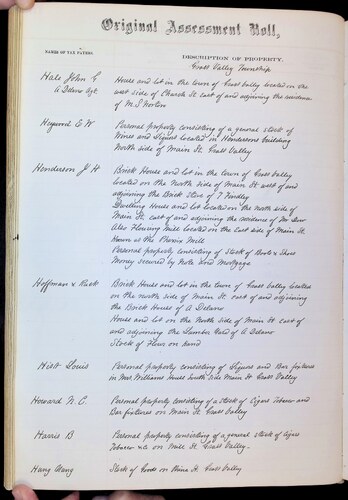 Original Assessment Roll,
NAMES OF TAX PAYERS.
DESCRIPTION OF PROPERTY.
Grass Valley Township
Hale John G
A Delano Agt
House and lot in the town of Grass Valley located on the
west side of Church St. east of and adjoining the residence
of M. S. Norton
Heyward E W
Personal property consisting of a general stock of
Wines and Liquors located in Hendersons building
North side of Main St. Grass Valley
Henderson J H
Brick House and lot in the town of Grass Valley
located on the North side of Main St east of and
adjoining the Brick Store of T Findley
Dwelling House and lot located on the north side of
Main St. east of and adjoining the residence of Mr
Also Flouring Mill located on the East side of Main St.
Known as the Phenix Mill
Personal property consisting of Stock of Boots & Shoes
Money secured by Note and Mortgage
Hoffman &
Brick House and lot in the town of Grass Valley located
on the north side of Main St. east of and adjoining
the Brick House of A Delano
House and lot on the North side of Main St east of
and adjoining the Lumber Yard of A Delano
Stock of Flour on hand
Louis
Personal property consisting of Liquors and Bar fixtures
in Mrs Williams House South side Main St Grass Valley
Howard N. C.
Personal property consisting of a stock of Cigars Tobacco and
Bar fixtures on Main St Grass Valley
Harris B
Personal property consisting of a general stock of Cigars
Tobacco &c on Mill St. Grass Valley.
Hang Wang
Stock of Goods on Main St Grass Valley